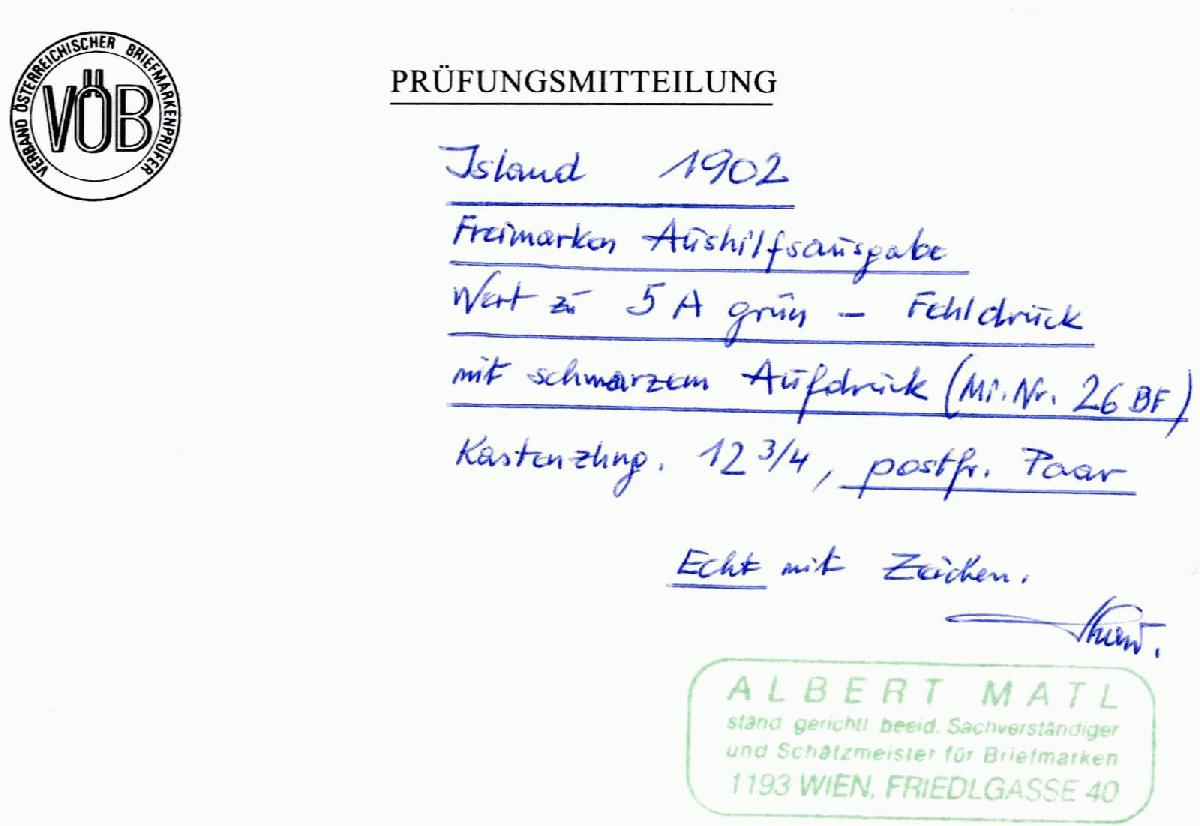 VERBAND ÖSTERREICHISCHER BRIEFMARKENPRÜFER
VÖB
PRÜFUNGSMITTEILUNG
Island 1902
Freimarken Aushilfsausgabe
Wert zu 5 A grün – Fehldruck
mit schwarzem Aufdruck (Mi.Nr. 26 BF)
Kastenzhng. 12 3/4, postfr. Paar
Echt mit Zeichen.
ALBERT MATL
ständ gerichtl beeid. Sachverständiger
und Schätzmeister für Briefmarken
1193 WIEN, FRIEDLGASSE 40